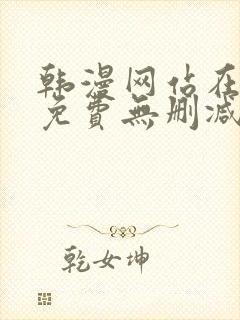 韩漫网站在
免費無删减
乾女坤